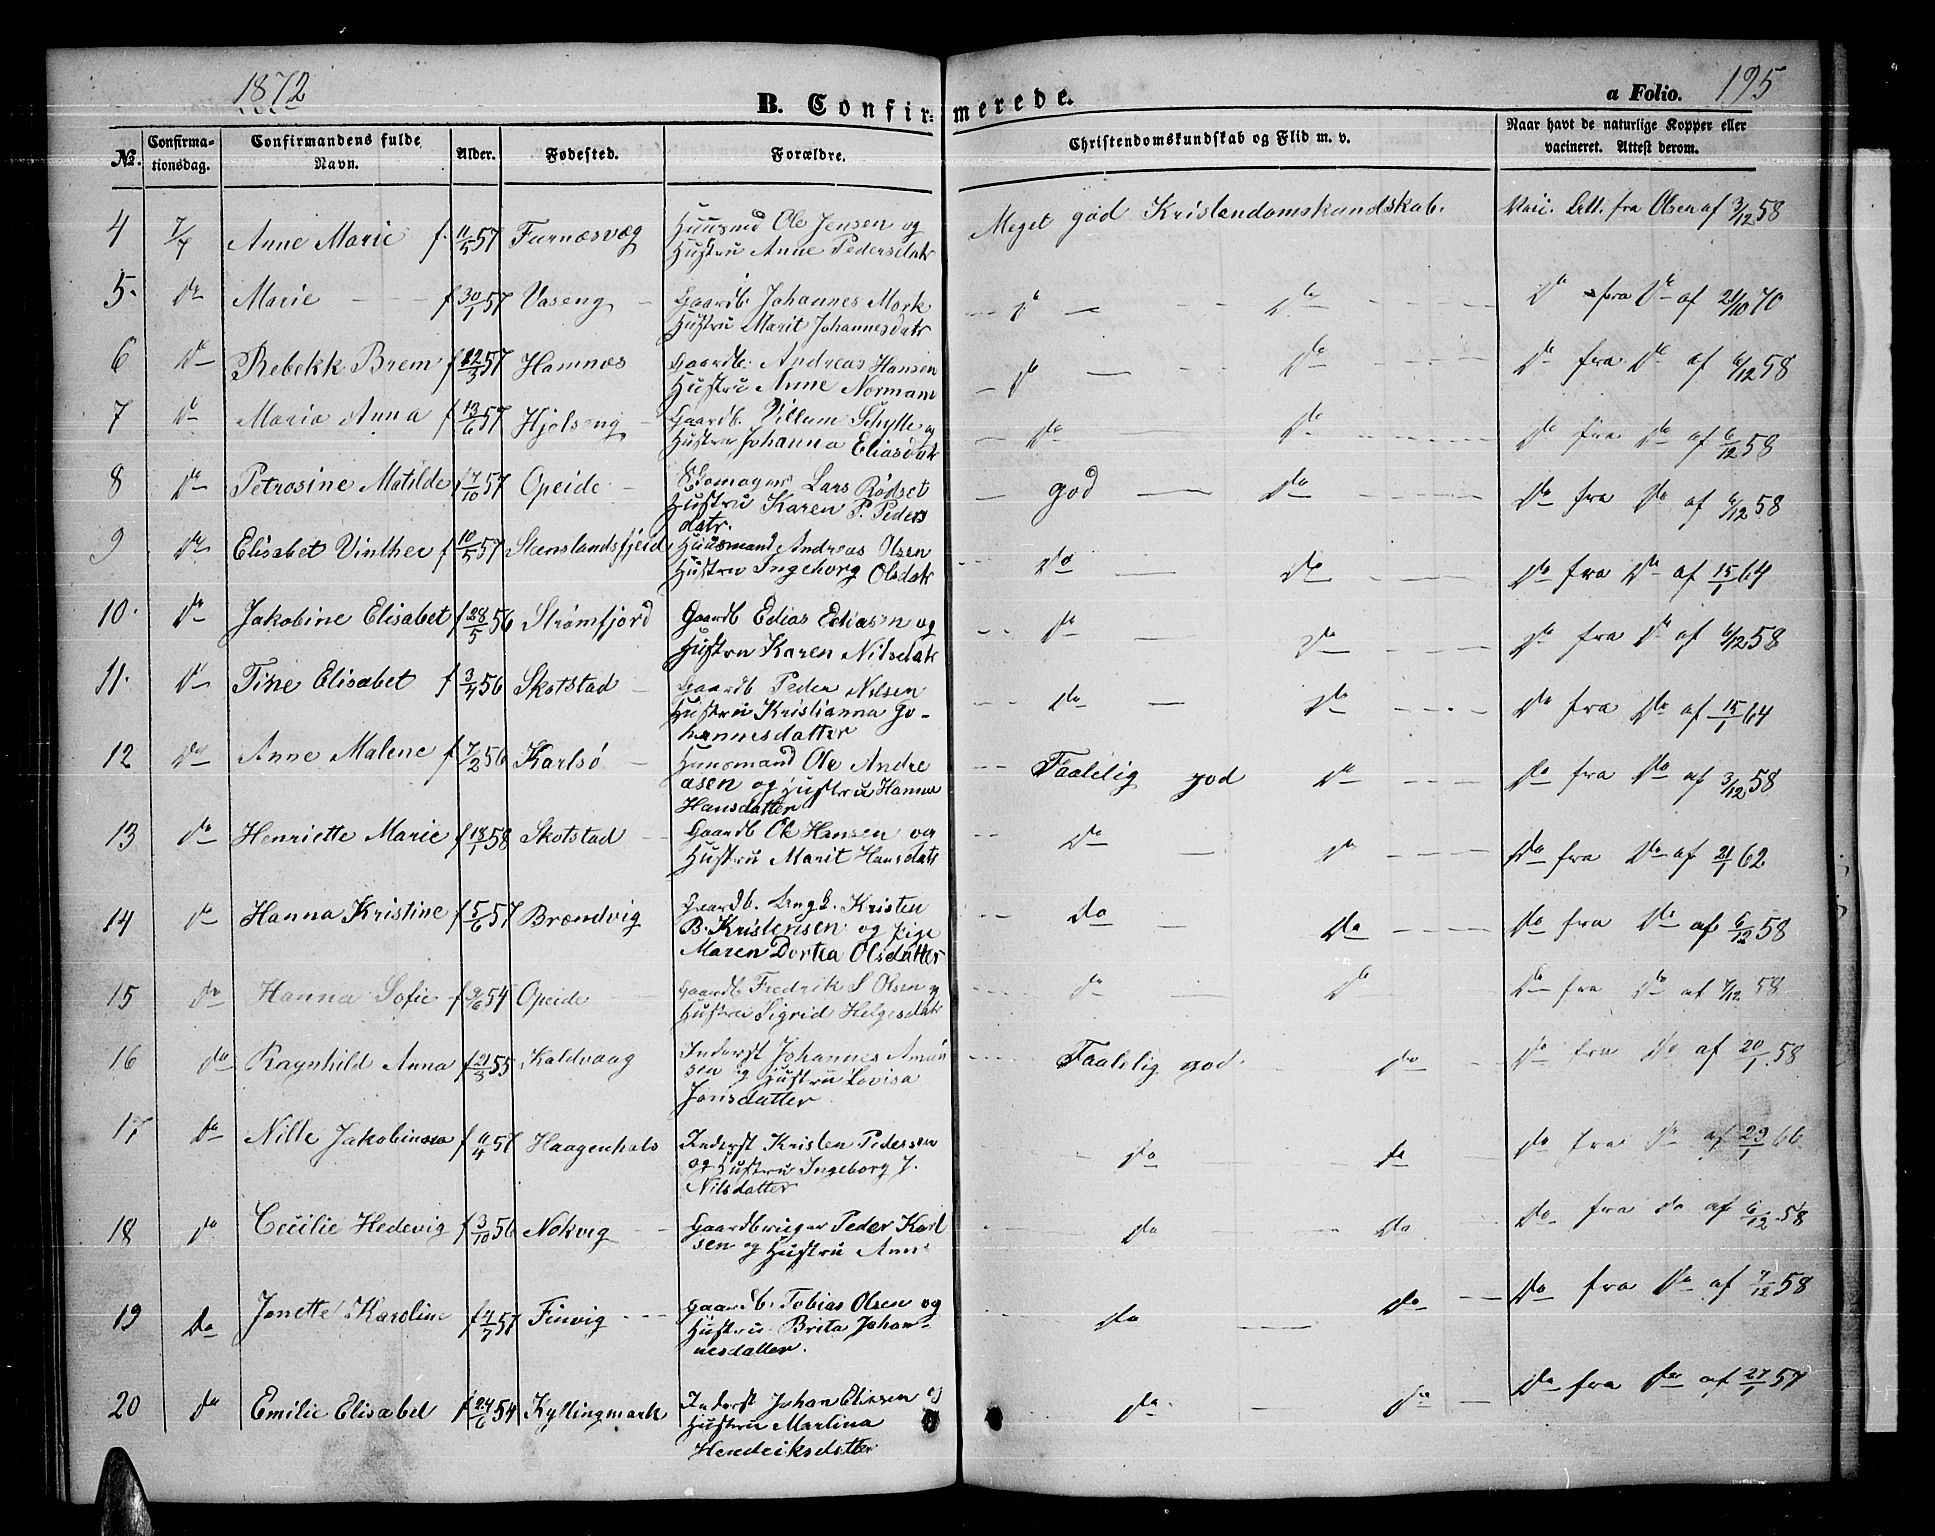 1872
B. Confirmerede.
a Folio. 195
No.
Confirma-tionsdag.
Confirmandens fulde Navn.
Alder.
Fødested.
Forældre.
Christendomskundskab og Flid m. v.
Naar havt de naturlige Kopper eller vacineret. Attest derom.
4 7/7 Anne Marie f. 11/5 57 Furnæsvæg Huusmd Ole Jensen og Meget god Kristendomskundskab. Att. fra Olsen af 3/12 58
Hustru Anne Pedersdatr
5. Do Marie f 30/1 57 Vaseng Gaardb. Johannes Mork Do Do fra Do af 21/10 70
Hustru Marit Johannesdatr
6 Do Rebekk Brem f 12/3 57 Hamnæs Gaardb. Andreas Hansen Do Do Do fra Do af 6/12 58
Hustru Anne Normann
7 Do Maria Anna f 13/6 57 Hjelseng Gaardb. Villum Schytte og Do Do Do fra Do af 6/12 58
Hustru Johanna Eliasdatr
8 Do Petrosine Matilde f 7/10 57 Opeide Skomager Lars Rødset god Do Do fra Do af 6/12 58
Hustru Karen P. Peders
datr.
9 Do Elisabet Vinther f 10/5 57 Stenslandsfjeld Huusmand Andreas Olsen Do Do Do fra Do af 15/1 64
Hustru Ingeborg Olsdatr
10. Do Jakobine Elisabet f 28/5 56 Strømfjord Gaardb Edias Ediasen og Do Do Do fra Do af 6/12 58
Hustru Karen Nilsdatr
11. Do Tine Elisabet f 3/4 56 Skotstad Gaardb Peder Nilsen Do Do Do fra Do af 15/1 64
Hustru Kristianna Jo-
hannesdatter
12 Do Anne Malene f 7/2 56 Karlsø Huusmand Ole Andre Taalelig god Do Do fra Do af 3/12 58
asen og Hustru Hanna
Hansdatter
13 Do Henriette Marie f 18/1 58 Skotstad Gaardb Ole Hansen og Do Do Do fra Do af 21/1 62
Hustru Marit Hansdatr
14 Do Hanna Kristine f 5/6 57 Brændvig Gaardb. Ungk. Kristen Do Do Do fra Do af 6/12 58
B. Kristensen og Pige
Maren Dortea Olsdatter
15 Do Hanna Sofie f 9/6 54 Opeide Gaardb Fredrik S Olsen og Do Do Do fra Do af 7/12 58
Hustru Sigrid Helgesdatr
16 Do Ragnhild Anna f 21/8 55 Kaldvaag Inderst Johannes Amun Taalelig god. Do Do fra Do af 20/1 58
sen og Hustru Lovisa
Jonsdatter
17, Do Nille Jakobinna f 11/4 57 Haagenhals Inderst Kristen Pedersen Do Do Do fra Do af 29/1 66
og Hustru Ingeborg J.
Nilsdatter
18 Do Cecilie Hedevig f 3/10 56 Nokvig Gaardbruger Peder Karl Do Do Do fra Do af 6/12 58
sen og Hustru Ann
19 Do Jonette Karoline f 4/7 57 Finvig Gaardb. Tobias Olsen og Do Do Do fra Do af 7/12 58
Hustru Brita Johan-
nesdatter.
20 Do Emilie Elisabet f 24/6 54 Kyllingmark Inderst Johan Eliesen og Do. Do Do fra Do af 27/1 57
Hustru Martina
Hendriksdatter